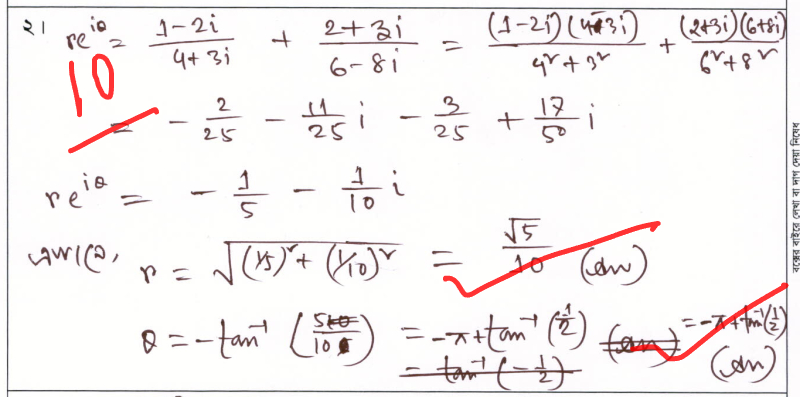 ২১
re^{iθ} = \frac{1-2i}{4+3i} + \frac{2+3i}{6-8i} = \frac{(1-2i)(4-3i)}{4²+3²} + \frac{(2+3i)(6+8i)}{6²+8²}
10
= -\frac{2}{25} - \frac{11}{25}i - \frac{3}{25} + \frac{17}{50}i
re^{iθ} = -\frac{1}{5} - \frac{1}{10}i
r = \sqrt{(1/5)² + (1/10)²} = \frac{√5}{10} (Ans)
θ = -tan⁻¹ = -π+tan⁻¹(\frac{1}{2}) = -π+tan⁻¹(\frac{1}{2}) (Ans)
= tan⁻¹(-\frac{1}{2})
বক্সের বাইরে লেখা বা দাগ দেয়া নিষেধ